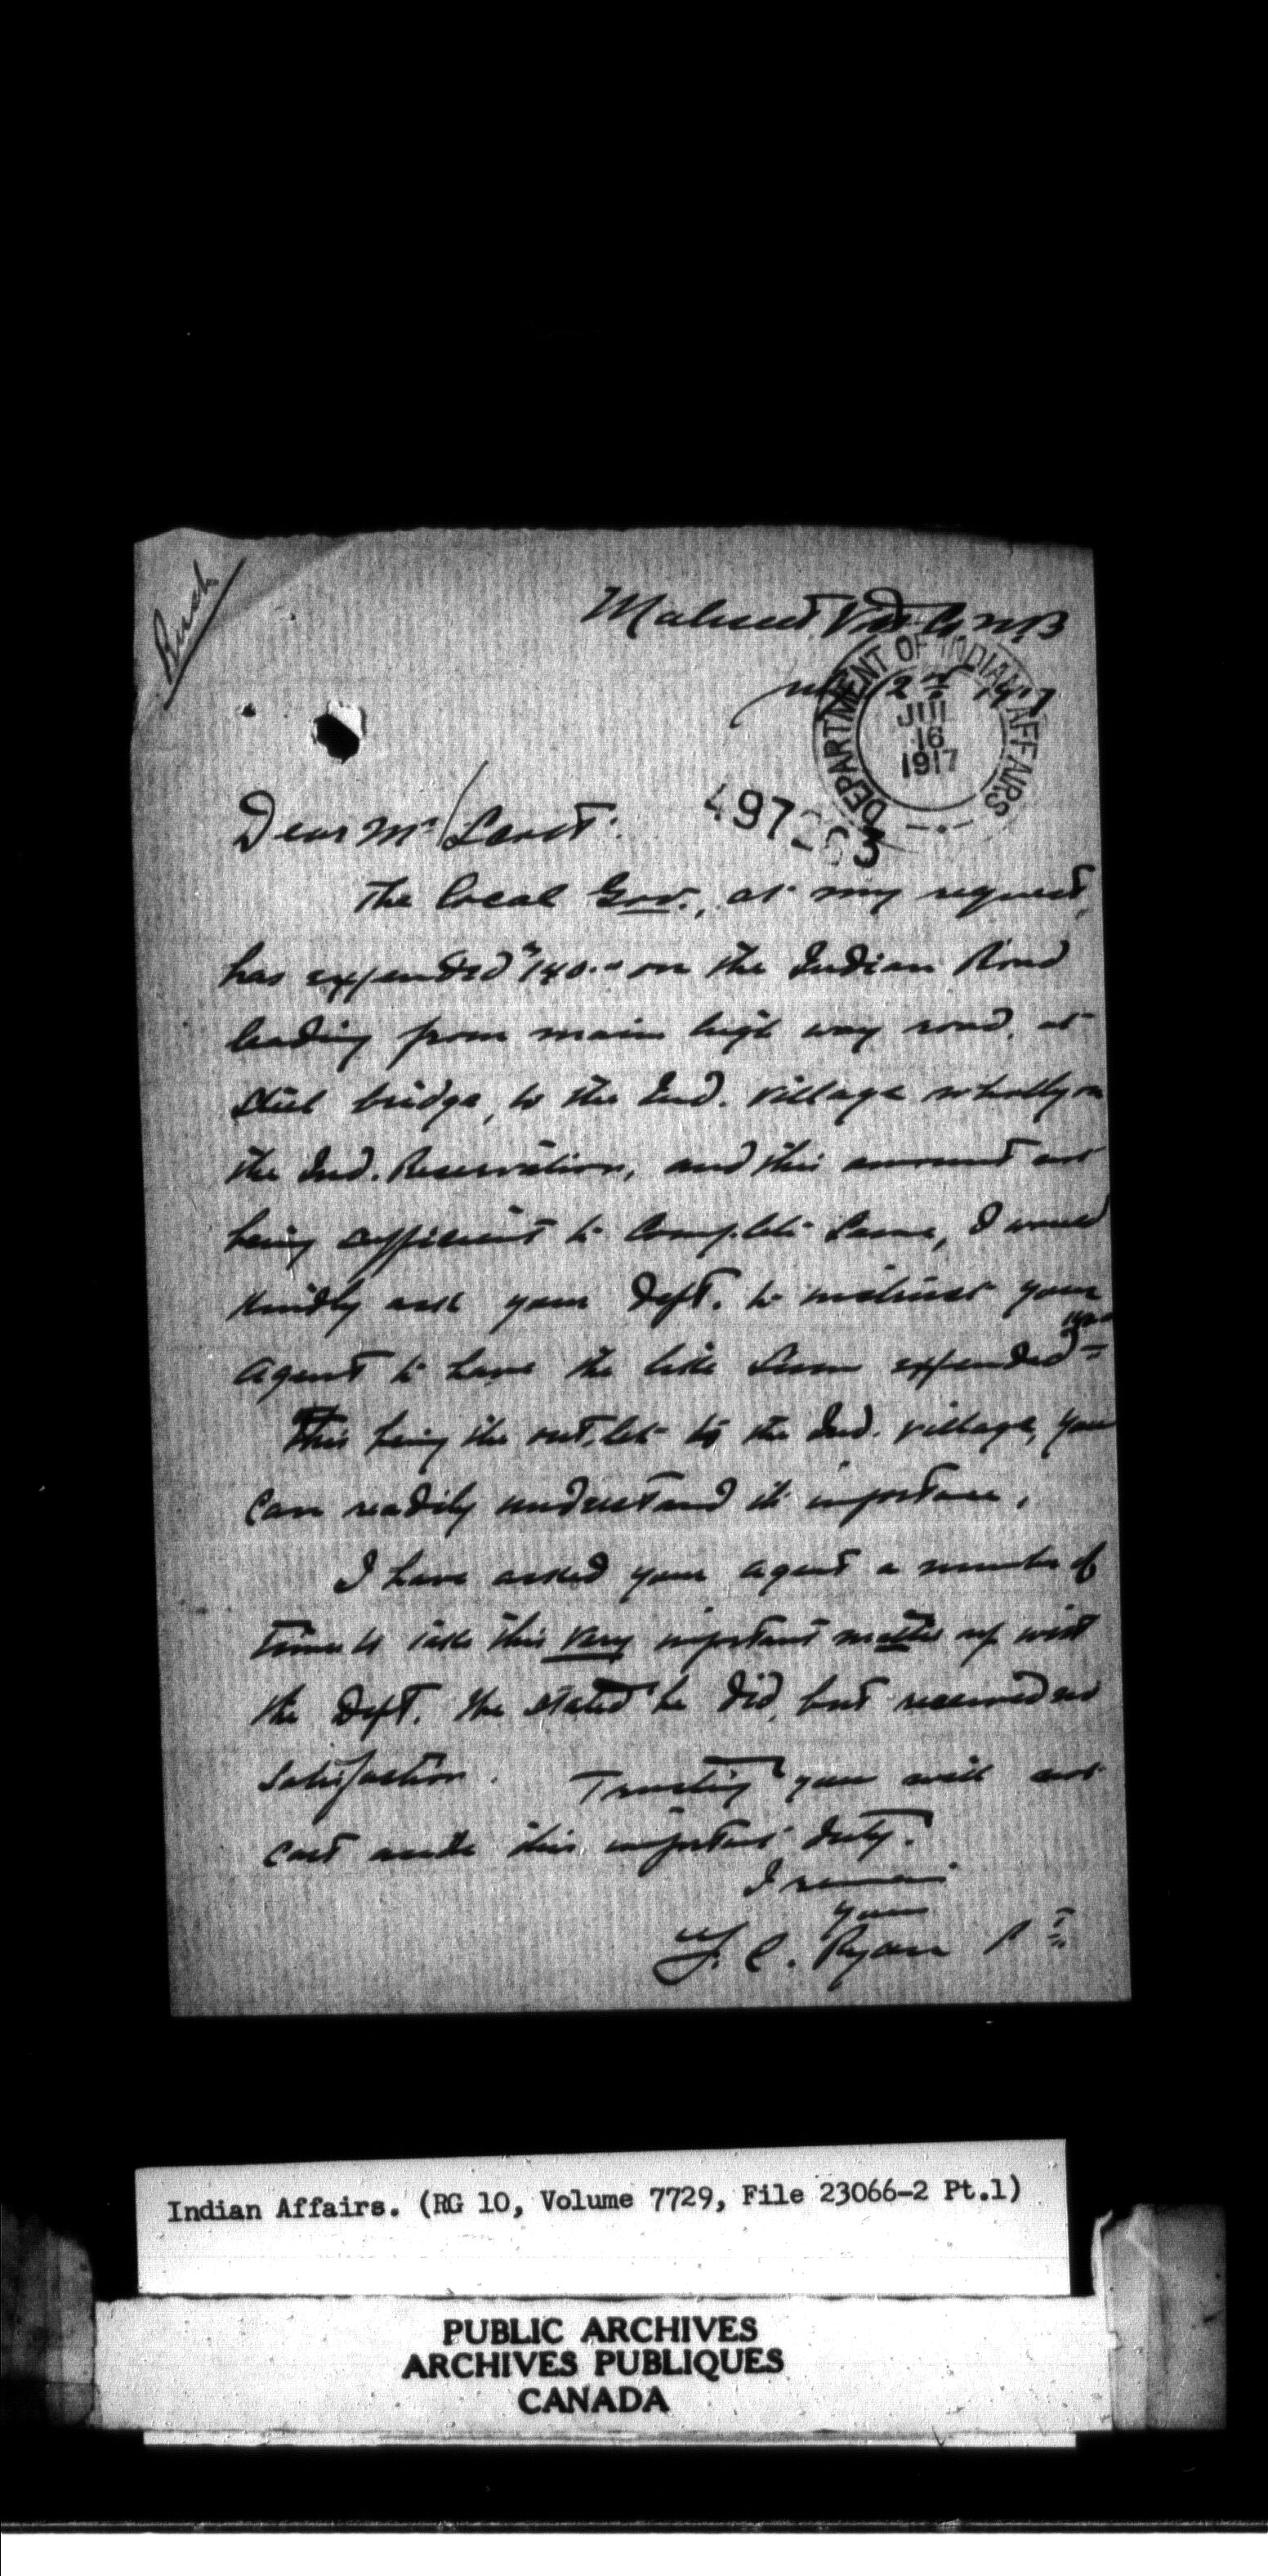 Rush
Maliseet, Vict. Co. N.B
July 12th 1917
DEPARTMENT OF INDIAN AFFAIRS
JUL
16
1917
Dear Mr Scott:
497263
The local Gov., at my request,
has expended $140.00 on the Indian Road
leading from main high way road, at
steel bridge, to the Ind. village wholly on
the Ind. Reservation, and this amount not
being sufficient to complete same, I would
kindly ask your Dept. to instruct your
agent to have the like sum expended
This being the out,let to the Ind. village, you
can readily understand its importance.
I have asked your agent a number of
times to take this very important matter up with
the Dept. He stated he did, but received no
satisfaction. Trusting you will not
cast aside this important duty.
I remain
yours
F. C. Ryan
Indian Affairs. (RG 10, Volume 7729, File 23066-2 Pt.1)
PUBLIC ARCHIVES
ARCHIVES PUBLIQUES
CANADA